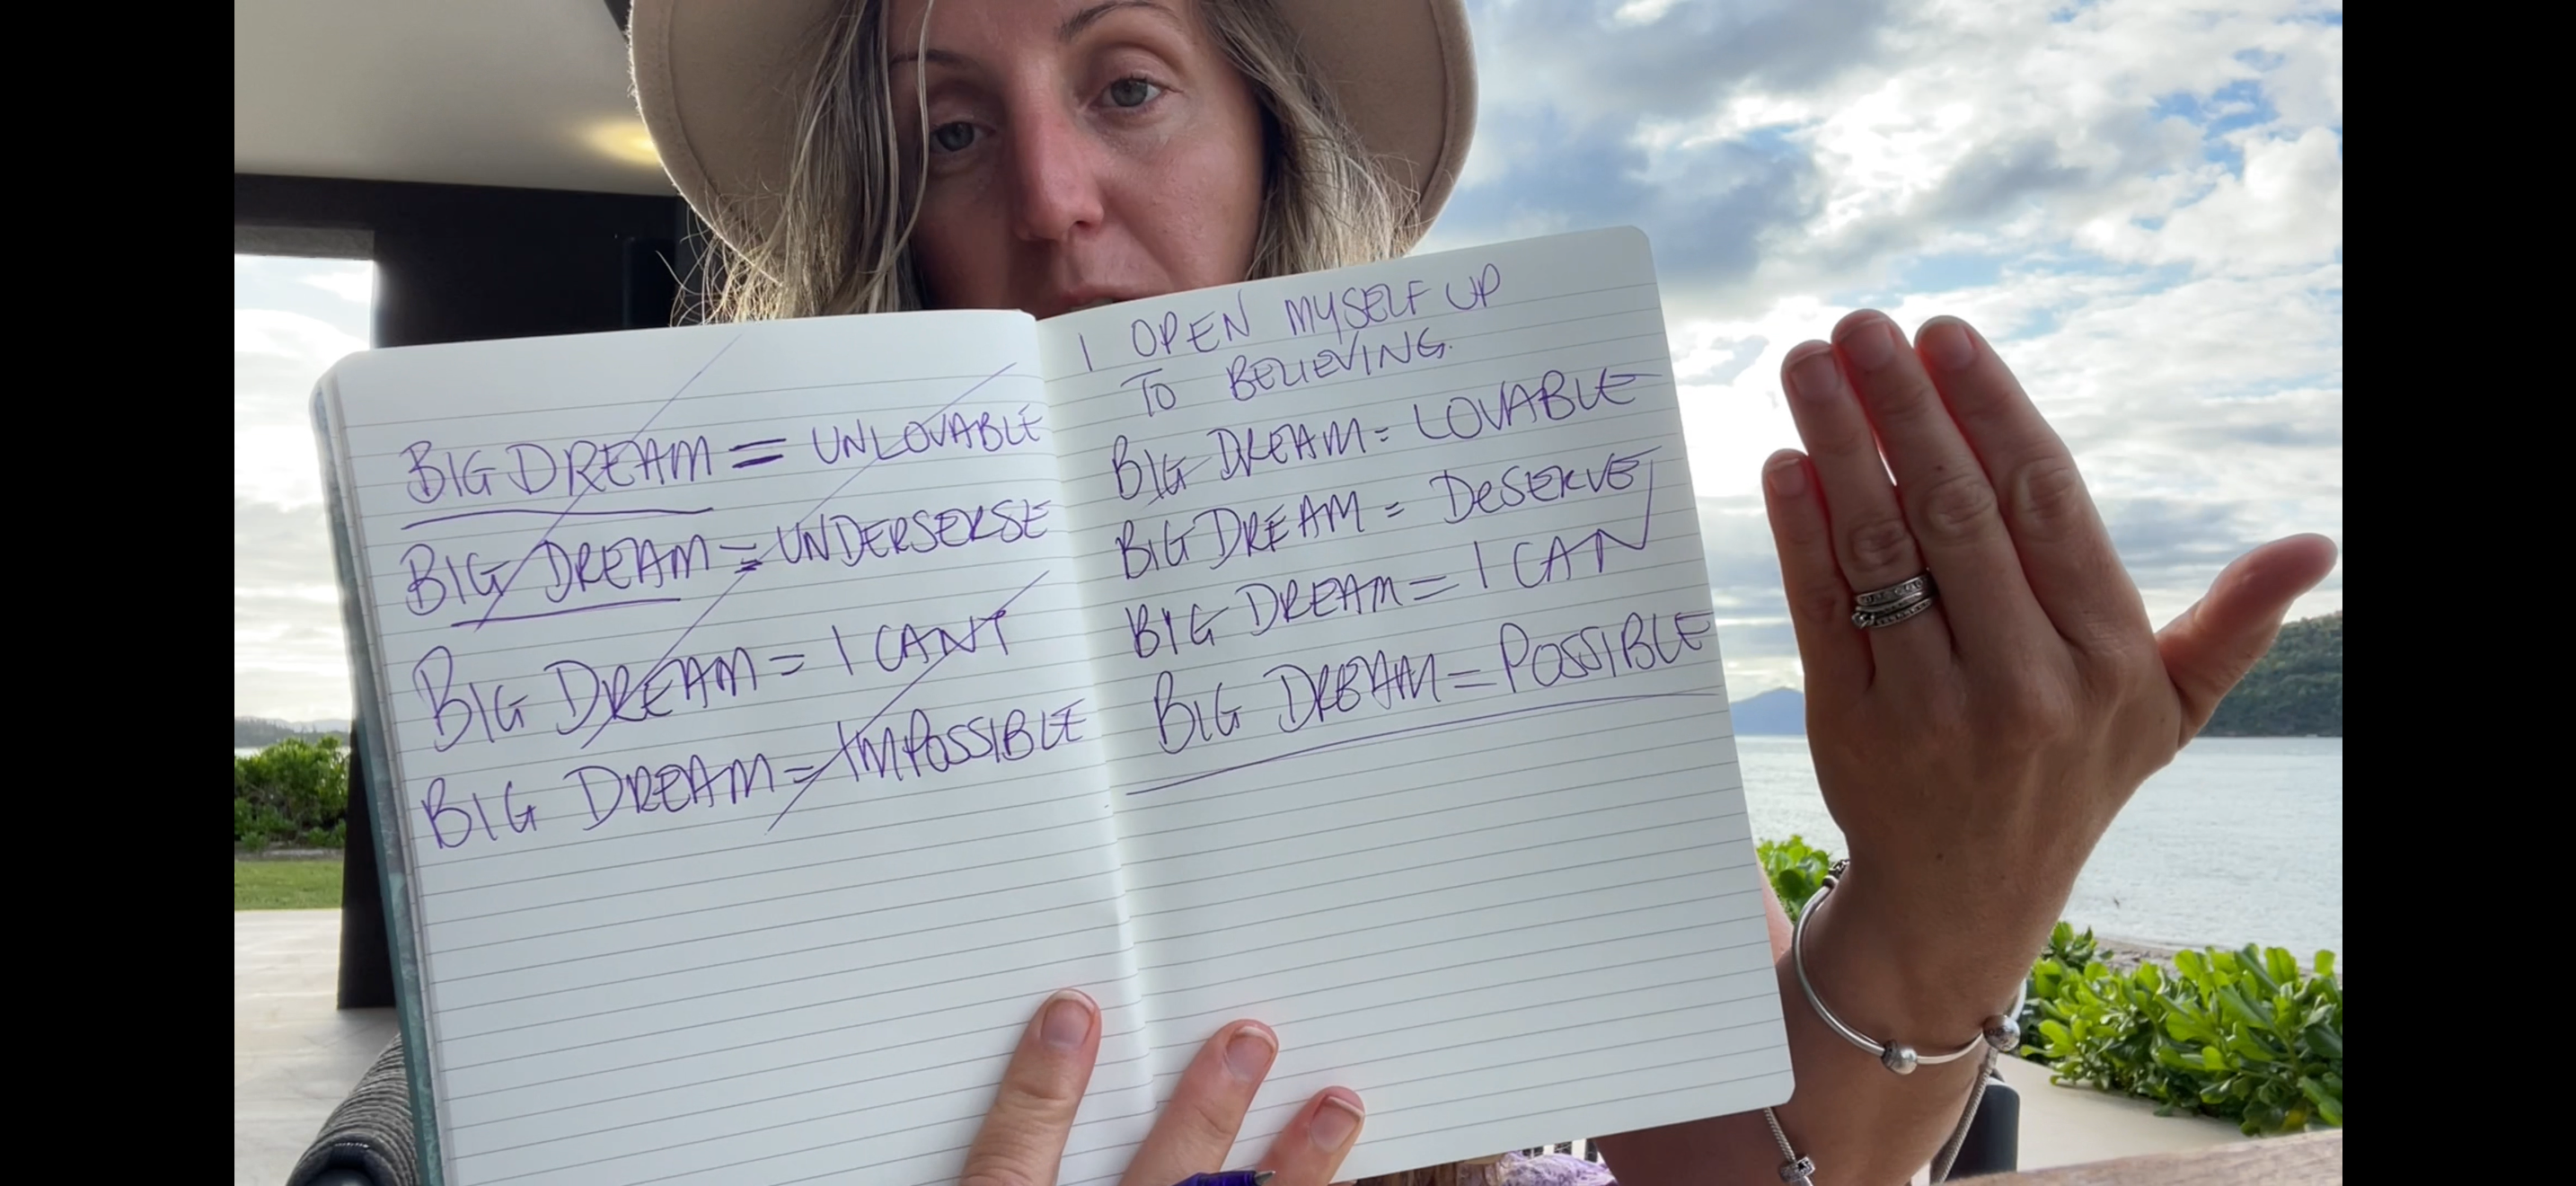 BIG DREAM = UNLOVABLE
BIG DREAM = UNDERSERSE
BIG DREAM = I CANT
BIG DREAM = IMPOSSIBLE
I OPEN MYSELF UP
TO BELIEVING.
BIG DREAM = LOVABLE
BIG DREAM = DESERVE
BIG DREAM = I CAN
BIG DREAM = POSSIBLE